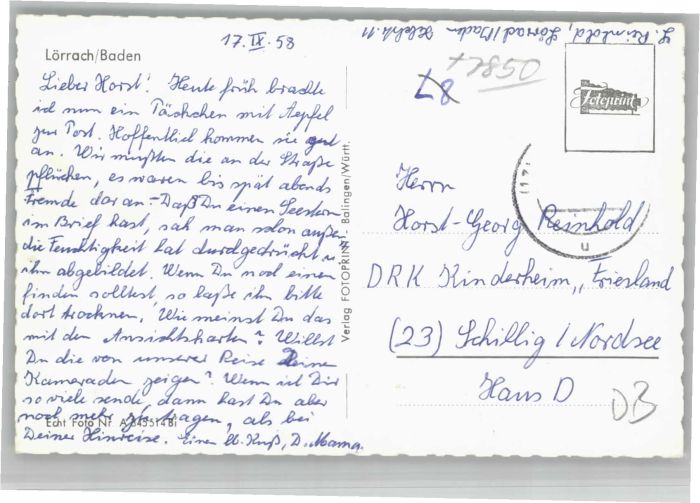 17.IX.58
L. Reinhold, Lörrach/Baden 11
Lörrach/Baden
Lieber Horst! Heute früh brachte
ich nun ein Päckchen mit Aepfel
zur Post. Hoffentlich kommen sie gut
an. Wir mußten die an der Straße
pflücken, es waren bis spät abends
Fremde daran – Daß Du einen Seestern
im Brief hast, sah man schon außen
die Feuchtigkeit hat durchgedrückt u
ihn abgebildet. Wenn Du noch einen
finden solltest, so laße ihn bitte
dort trocknen. Wie meinst Du das
mit den Ansichtskarten? Willst
Du die von unserer Reise Deinen
Kameraden zeigen? Wenn ich Dir
so viele sende dann hast Du aber
noch mehr zu tragen, als bei
Deiner Hinreise. Einen lb. Kuß, D. Mama.
Echt Foto Nr.
Verlag FOTOPRINT - Balingen/Württ.
87
Fotoprint
Herrn
Horst-Georg Reinhold
DRK Kinderheim „Friesland
(23) Schillig / Nordsee
Haus D